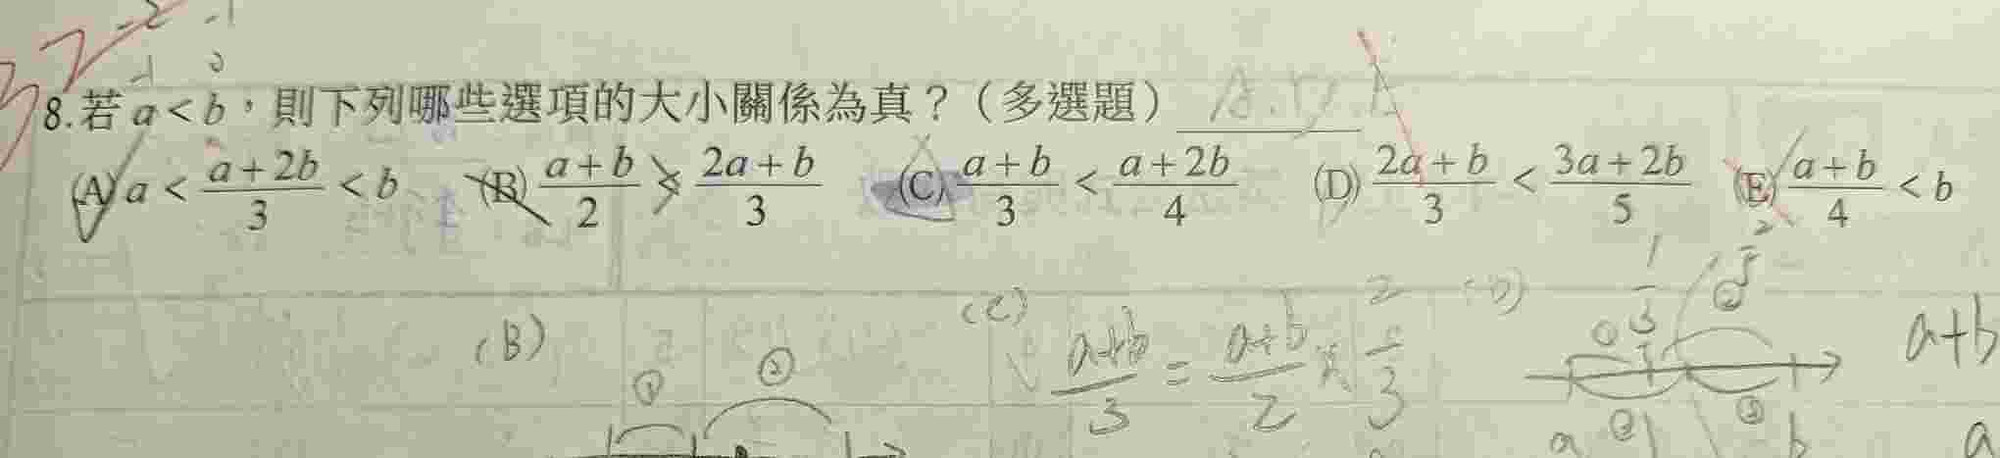 -2 -1
-1 0
8.若 a < b，則下列哪些選項的大小關係為真？（多選題） A.D.E
(A) a < \frac{a+2b}{3} < b (B) \frac{a+b}{2} < \frac{2a+b}{3} (C) \frac{a+b}{3} < \frac{a+2b}{4} (D) \frac{2a+b}{3} < \frac{3a+2b}{5} (E) \frac{a+b}{4} < b
(B) ① ②
(C) \frac{a+b}{3} = \frac{a+b}{2} × \frac{2}{3}
(D) \frac{1}{3} \frac{2}{5} ② ② ③ a b
a+b
a